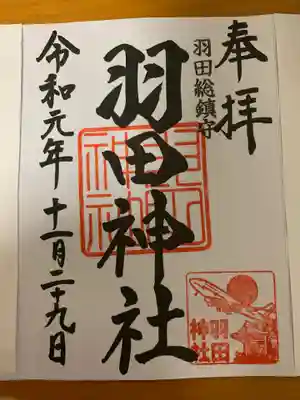 奉拝
羽田総鎮守
羽田神社
羽田神社
令和元年十一月二十九日
羽田
神社